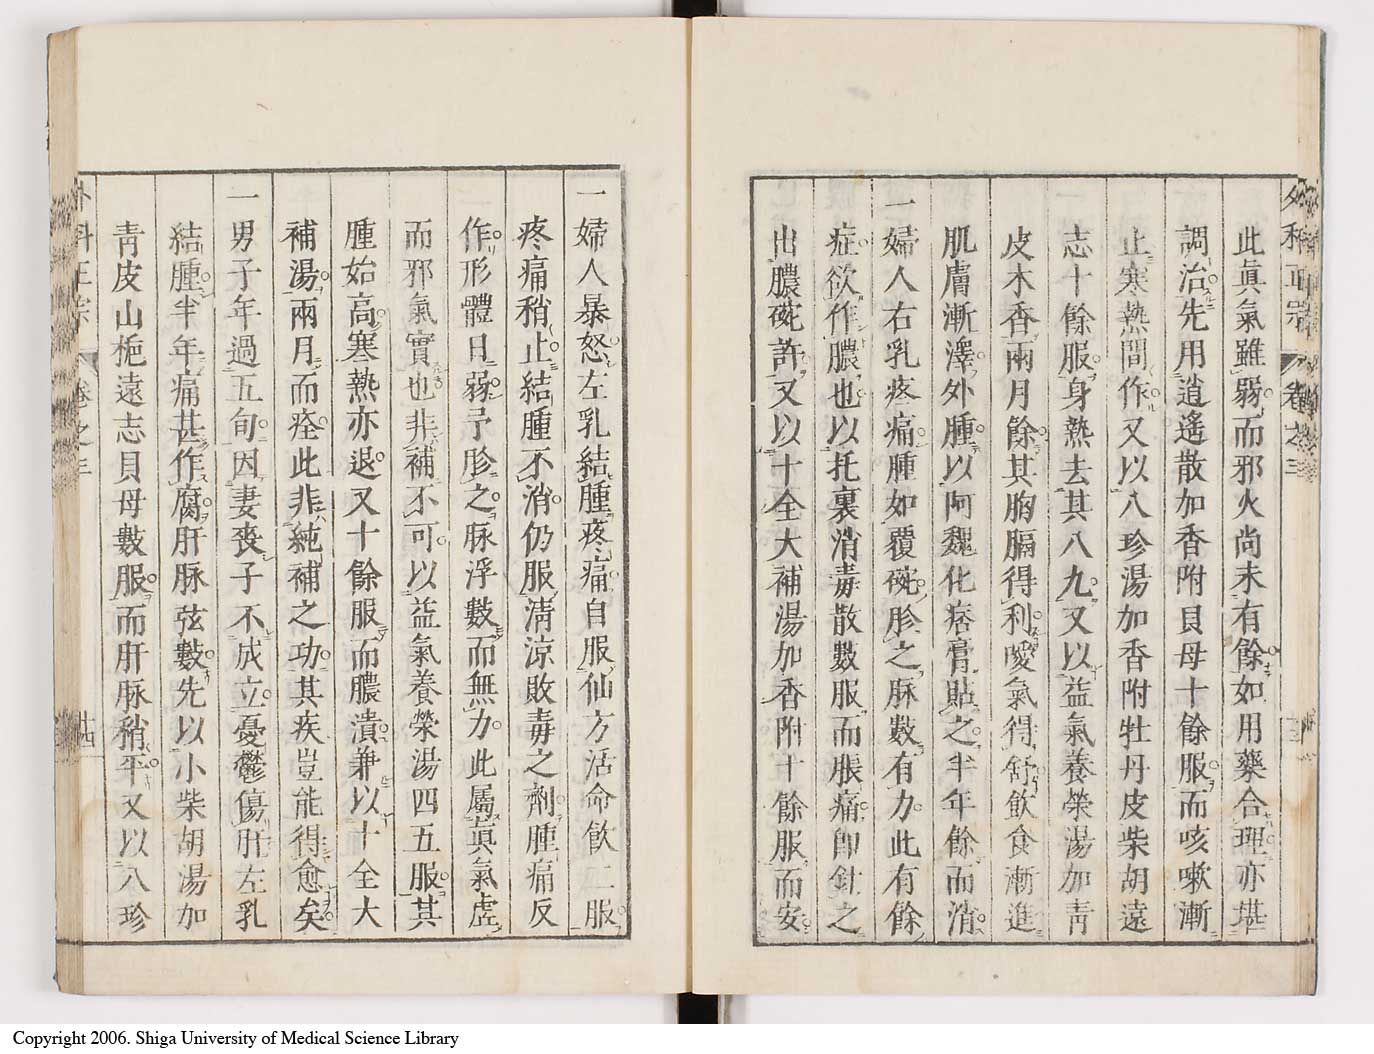 外科正宗 卷之三 十三
此眞氣雖弱而邪火尚未有餘如用藥合理亦堪
調治先用逍遙散加香附貝母十餘服而咳嗽漸
止寒熱間作又以八珍湯加香附牡丹皮柴胡遠
志十餘服身熱去其八九又以益氣養榮湯加靑
皮木香兩月餘其胸膈得利噯氣得舒飮食漸進
肌膚漸澤外腫以阿魏化痞膏貼之半年餘而消
一婦人右乳疼痛腫如覆碗胗之脉數有力此有餘
症欲作膿也以托裏消毒散數服而脹痛卽針之
出膿碗許又以十全大補湯加香附十餘服而安
一婦人暴怒左乳結腫疼痛自服仙方活命飮二服
疼痛稍止結腫不消仍服淸涼敗毒之劑腫痛反
作形體日弱予胗之脉浮數而無力此屬眞氣虛
而邪氣實也非補不可以益氣養榮湯四五服其
腫始高寒熱亦退又十餘服而膿潰兼以十全大
補湯兩月而痊此非純補之功其疾豈能得愈矣
一男子年過五旬因妻喪子不成立憂鬱傷肝左乳
結腫半年痛甚作腐肝脉弦數先以小柴胡湯加
靑皮山梔遠志貝母數服而肝脉稍平又以八珍
外科正宗 卷之三 十四
Copyright 2006. Shiga University of Medical Science Library